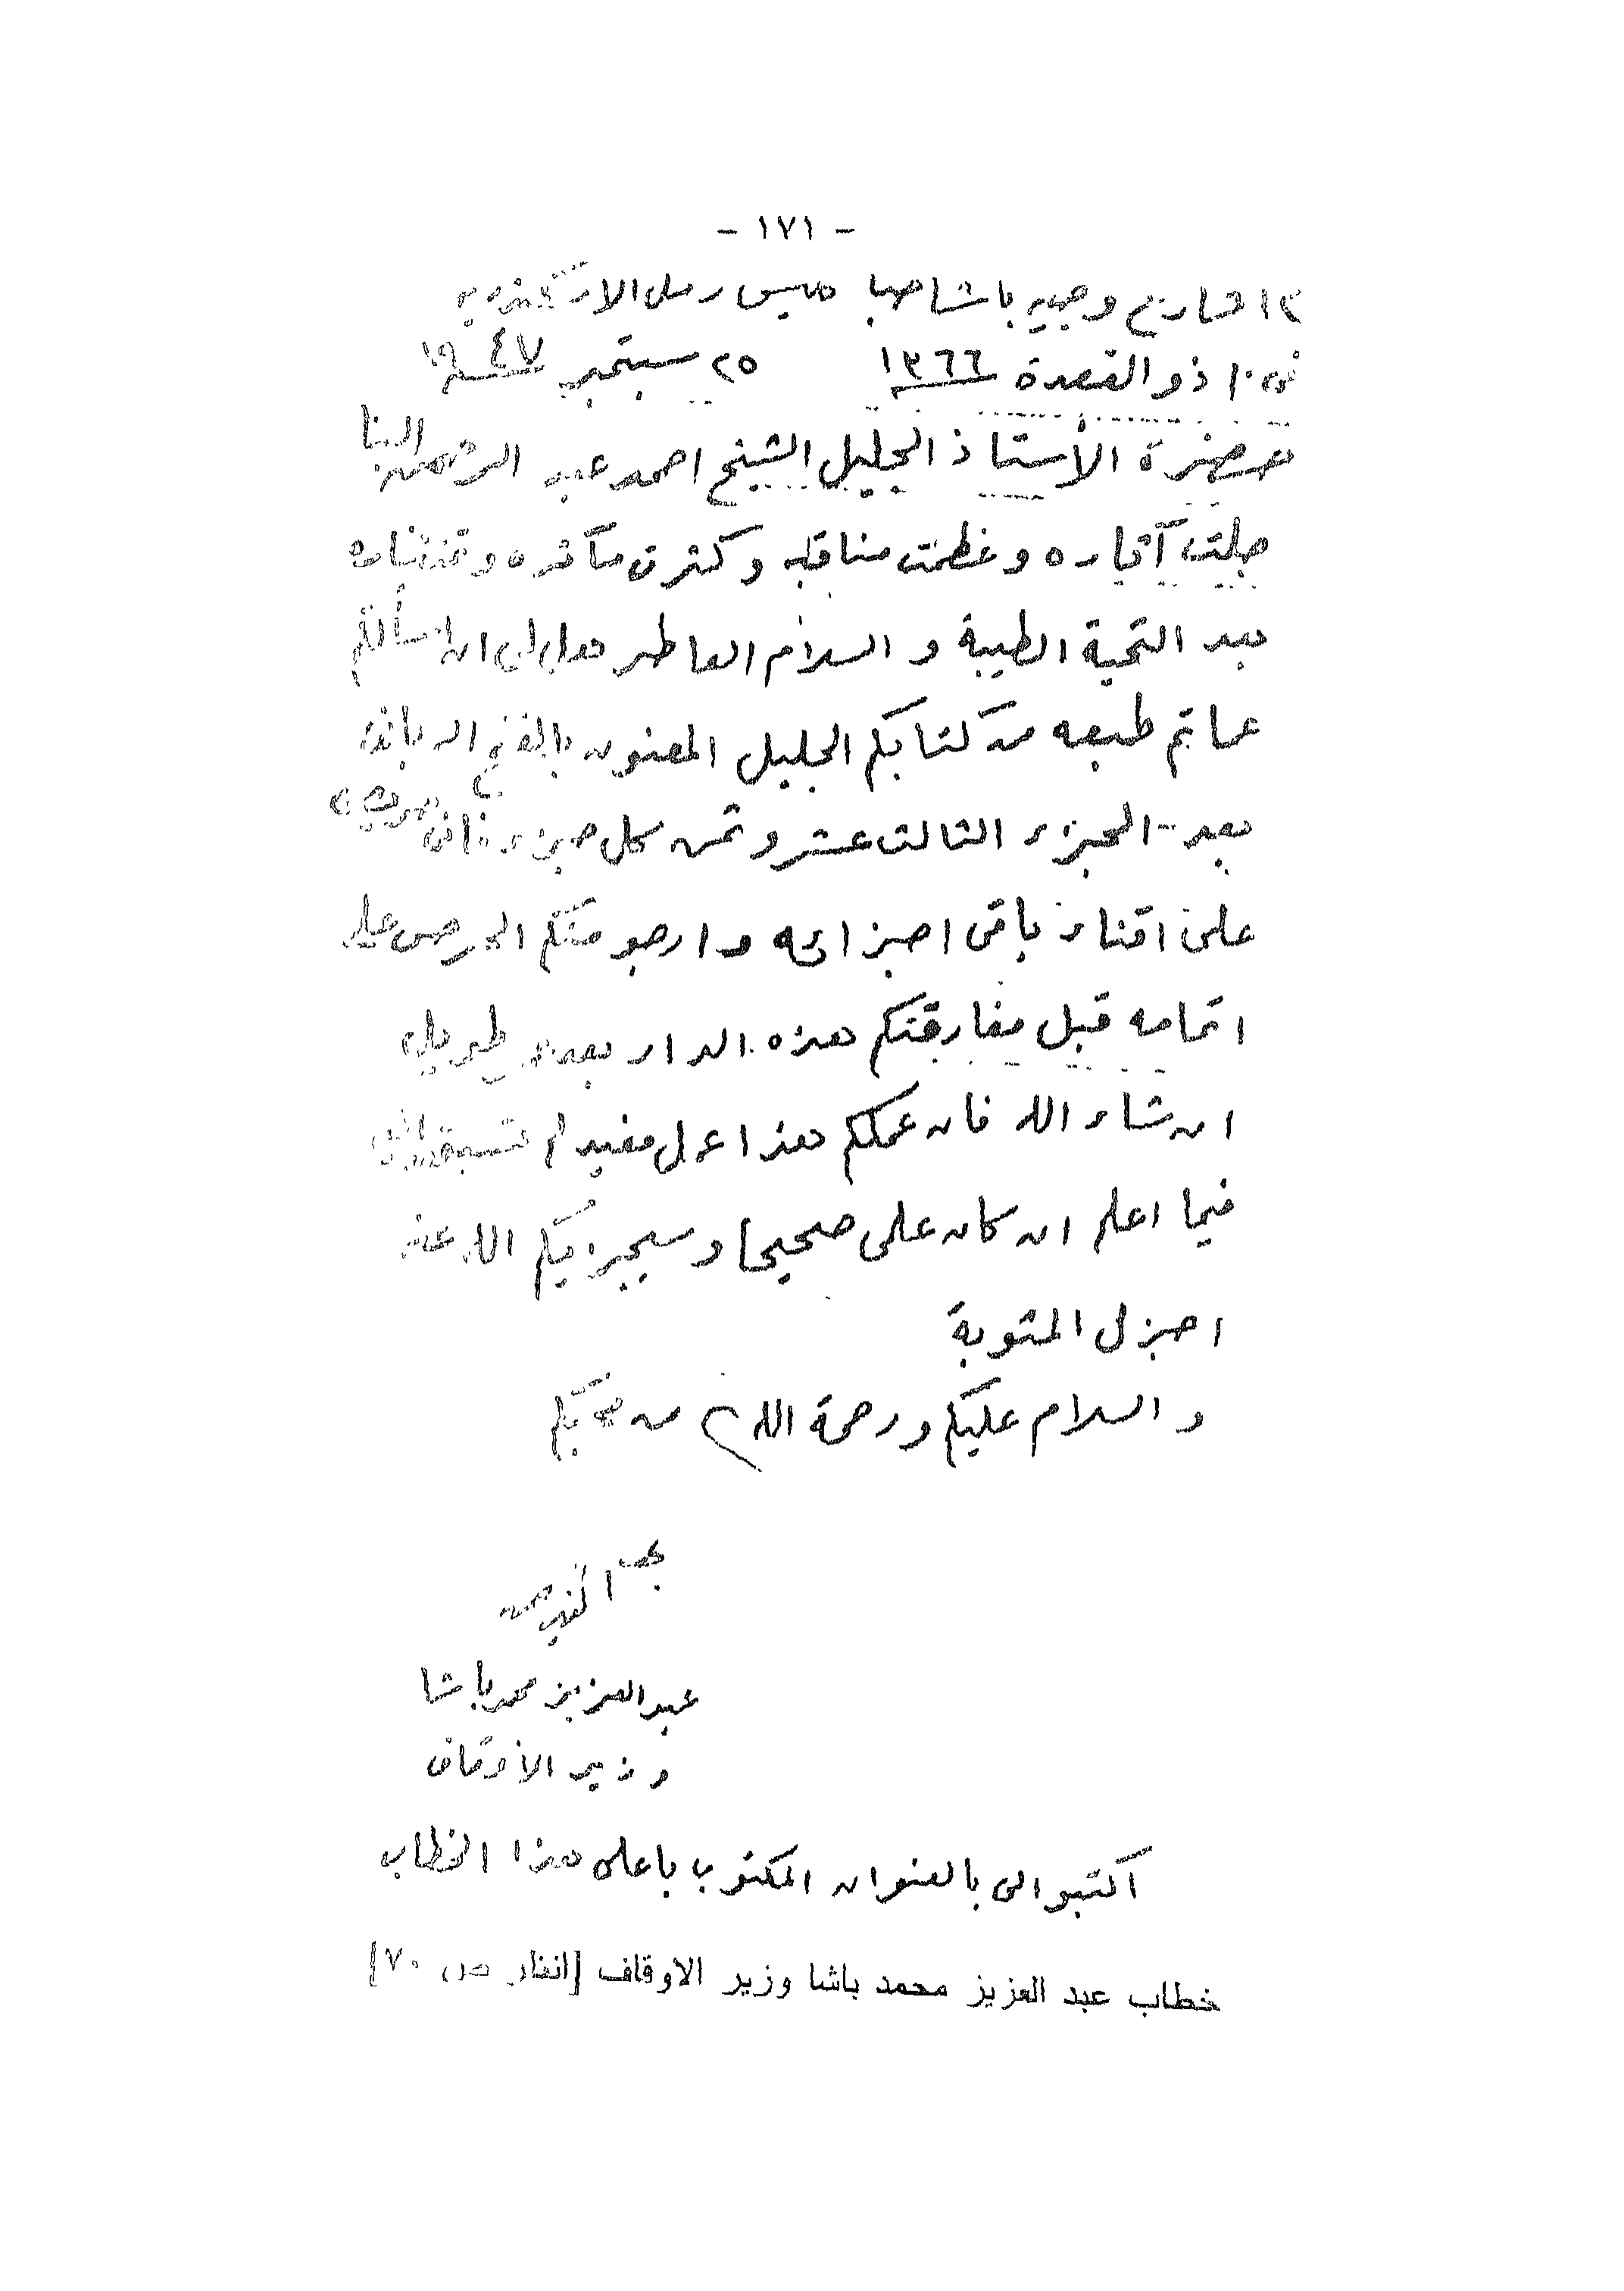 - ١٧١ -
١٣ شارع وجيه باشا صبا بميس رمل الاسكندريه
فى ١٠ ذو القعدة ١٣٦٦ ٢٥ سبتمبر ١٩٤٧
حضرة الأستاذ الجليل الشيخ احمد عبد الرحمن البنا
جلت آثاره وعظمت مناقبه وكثرت مآثره
بعد التحية الطيبة و السلام العاطر هل لى ان اسألكم
عما تم طبعه من كتابكم الجليل المعنون بالفتح الربانى
بعد الجزء الثالث عشر وثمن كل جزء فانى حريص
على اقتناء باقى اجزائه وارجو منكم الحرص على
اتمامه قبل مفارقتكم هذه الدار بعد عمر طويل
ان شاء الله فان عملكم هذا عمل مفيد لم
فيما اعلم ان كان على صحيحا وسيجزيكم الله عنه
اجزل المثوبة
و السلام عليكم ورحمة الله من محبكم
عبد العزيز محمد باشا
وزير الأوقاف
اكتبوا لى بالعنوان المكتوب باعلى هذا الخطاب
خطاب عبد العزيز محمد باشا وزير الاوقاف [انظر ص ٧٠]